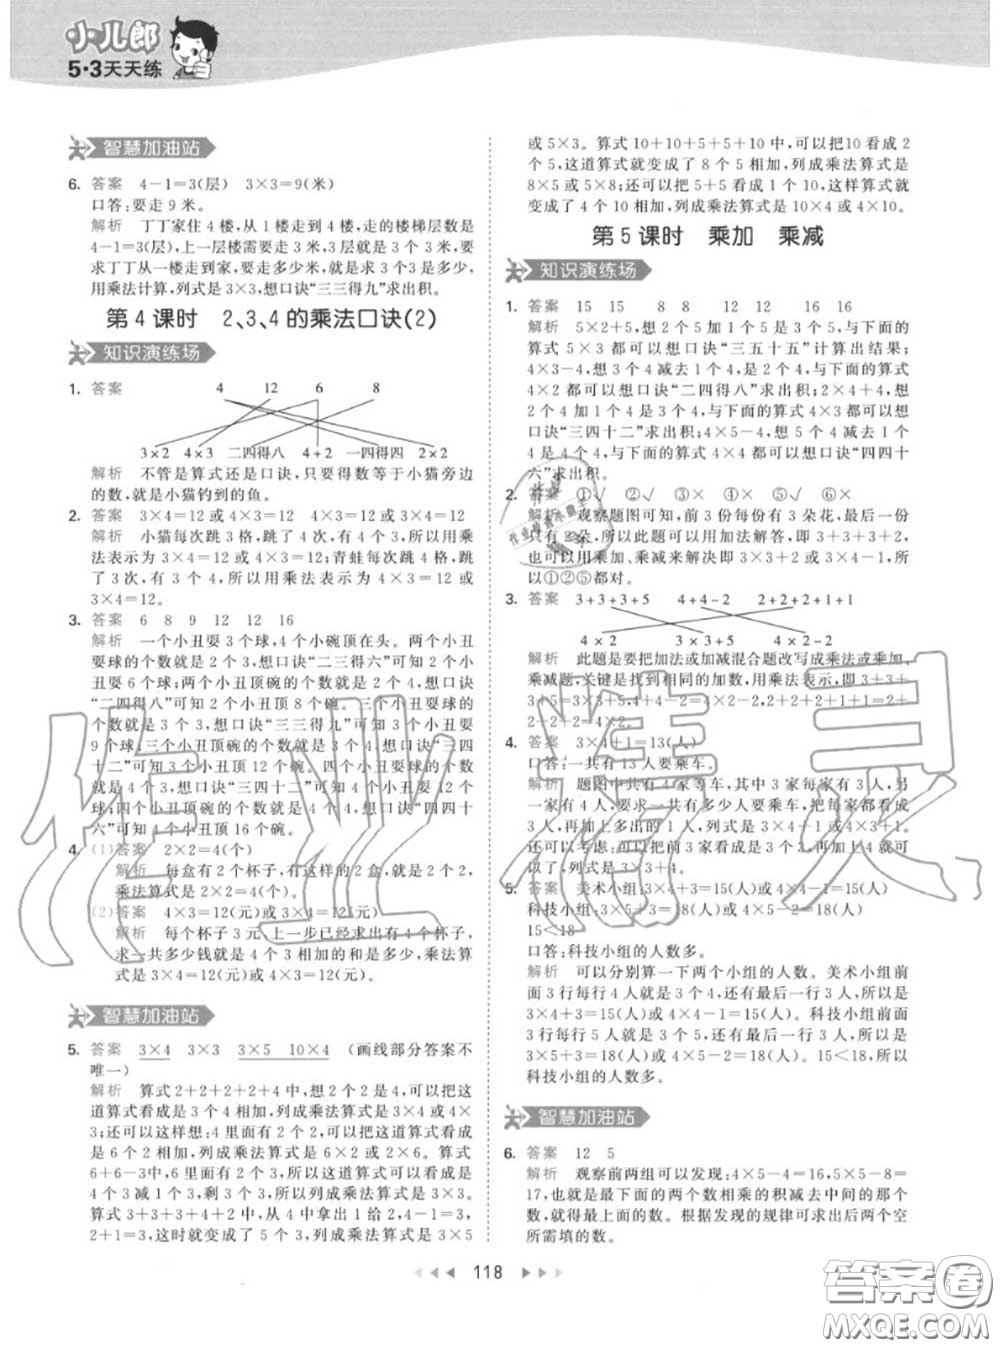 小儿郎
5·3天天练
智慧加油站
6. 答案 4－1=3(层) 3×3=9(米)
口答:要走 9 米。
解析 丁丁家住 4 楼,从 1 楼走到 4 楼,走的楼梯层数是
4－1=3(层),上一层楼需要走 3 米,3 层就是 3 个 3 米,要
求丁丁从一楼走到家,要走多少米,就是求 3 个 3 是多少,
用乘法计算,列式是 3×3,想口诀“三三得九”求出积。
第 4 课时 2、3、4 的乘法口诀(2)
知识演练场
1. 答案 4 12 6 8
3×2 4×3 二四得八 4+2 一四得四 2×2
解析 不管是算式还是口诀,只要得数等于小猫旁边
的数,就是小猫钓到的鱼。
2. 答案 3×4=12 或 4×3=12 4×3=12 或 3×4=12
解析 小猫每次跳 3 格,跳了 4 次,有 4 个 3,所以用乘
法表示为 3×4=12 或 4×3=12;青蛙每次跳 4 格,跳
了 3 次,有 3 个 4,所以用乘法表示为 4×3=12 或
3×4=12。
3. 答案 6 8 9 12 12 16
解析 一个小丑要 3 个球,4 个小碗顶在头。两个小丑
要的个数就是 2 个 3,想口诀“二三得六”可知 2 个小丑
要 6 个球;两个小丑顶碗的个数就是 2 个 4,想口诀
“二四得八”可知 2 个小丑顶 8 个碗。三个小丑要球的
个数就是 3 个 3,想口诀“三三得九”可知 3 个小丑要
9 个球;三个小丑顶碗的个数就是 3 个 4,想口诀“三四
十二”可知 3 个小丑顶 12 个碗。四个小丑要球的个数
就是 4 个 3,想口诀“三四十二”可知 4 个小丑要
12 个球;四个小丑顶碗的个数就是 4 个 4,想口诀“四四十
六”可知 4 个小丑顶 16 个碗。
4. (1)答案 2×2=4(个)
解析 每盒有 2 个杯子,有这样的 2 盒,就是 2 个 2,
乘法算式是 2×2=4(个)。
(2)答案 4×3=12(元)或 3×4=12(元)
解析 每个杯子 3 元,上一步已经求出共有 4 个杯子,
求一共多少钱就是 4 个 3 相加的和是多少,乘法算
式是 3×4=12(元)或 4×3=12(元)。
智慧加油站
5. 答案 3×4 3×3 3×5 10×4 (画线部分答案不
唯一)
解析 算式 2+2+2+2+4 中,想 2 个 2 是 4,可以把这
道算式看成是 3 个 4 相加,列成乘法算式是 3×4 或 4×
3;还可以这样想:4 里面有 2 个 2,可以把这道算式看成
是 6 个 2 相加,列成乘法算式是 6×2 或 2×6。算式
6+6－3中,6 里面有 2 个 3,所以这道算式可以看成是
4 个 3 减 1 个 3,剩 3 个 3,所以列成乘法算式是 3×3。
算式 3+3+3+4+2 中,从 4 中拿出 1 给 2,4－1=3,
2+1=3,这时就变成了 5 个 3 相加,列成乘法算式是 3×5
或 5×3。算式 10+10+5+5+10 中,可以把10 看成 2
个 5,这道算式就变成了 8 个 5 相加,列成乘法算式是
8×5 或 5×8;还可以把 5+5 看成 1 个 10,这样算式就
变成了 4 个 10 相加,列成乘法算式是 10×4 或 4×10。
第 5 课时 乘加 乘减
知识演练场
1. 答案 15 15 8 8 12 12 16 16
解析 5×2+5,想 2 个 5 加 1 个 5 是 3 个 5,与下面的
算式 5×3 都可以想口诀“三五十五”计算出结果;
4×3－4,想 3 个 4 减去 1 个 4,是 2 个 4,与下面的算式
4×2 都可以想口诀“二四得八”求出积;2×4+4,想
2 个 4 加 1 个 4 是 3 个 4,与下面的算式 4×3 都可以想
口诀“三四十二”求出积;4×5－4,想 5 个 4 减去 1 个 4
是 4 个 4,与下面的算式 4×4 都可以想口诀“四四十
六”求出积。
2. 答案 ①√ ②√ ③× ④× ⑤√
解析 观察题图可知,前 3 份每份有 3 朵花,最后一份
只有 2 朵,所以可以用加法解答,即 3+3+3+2,
也可以用乘加、乘减来解决即 3×3+2 或 3×4－1,所
以①②⑤都对。
3. 答案 3+3+3+5 4+4－2 2+2+2+1+1
4×2 3×3+5 4×2－2
解析 此题是要把加法或加减混合题改写成乘法或乘加、
乘减题,关键是找到相同的加数,用乘法表示,即 3+3+
3+5=3×3+5,4+4－2=4×2－2,2+2+2+1+1=
2+2+2+2=4×2。
4. 答案 3×4+1=13(人)
口答:一共有 13 人要乘车。
解析 题图中共有 4 家等车,其中 3 家每家有 3 人,另
一家有 4 人,要求一共有多少人要乘车,可以把每家都看成
3 人,再加上多出的 1 人,列式是 3×4+1 或 4×3+1。
还可以这么考虑:可以把前 3 家看成都是 3 人,再加上 4 就可
以了,列式是 3×3+4。
5. 答案 美术小组:3×4+3=15(人)或 4×4－1=15(人)
科技小组:3×5+3=18(人)或 4×5－2=18(人)
15<18
口答:科技小组的人数多。
解析 可以分别算一下两个小组的人数。美术小组前
面 3 行每行 4 人就是 3 个 4,还有最后一行 3 人,所以是
3×4+3=15(人)或 4×4－1=15(人)。科技小组前面
3 行每行 5 人就是 3 个 5,还有最后一行 3 人,所以是
3×5+3=18(人)或 4×5－2=18(人)。15<18,所以
科技小组的人数多。
智慧加油站
6. 答案 12 5
解析 观察前两组可以发现:4×5－4=16,5×5－8=
17,也就是最下面的两个数相乘的积减去中间的那个
数,就得最上面的数。根据发现的规律可求出后两个空
所需填的数。
118
作业精灵
答案卷
MXQE.COM